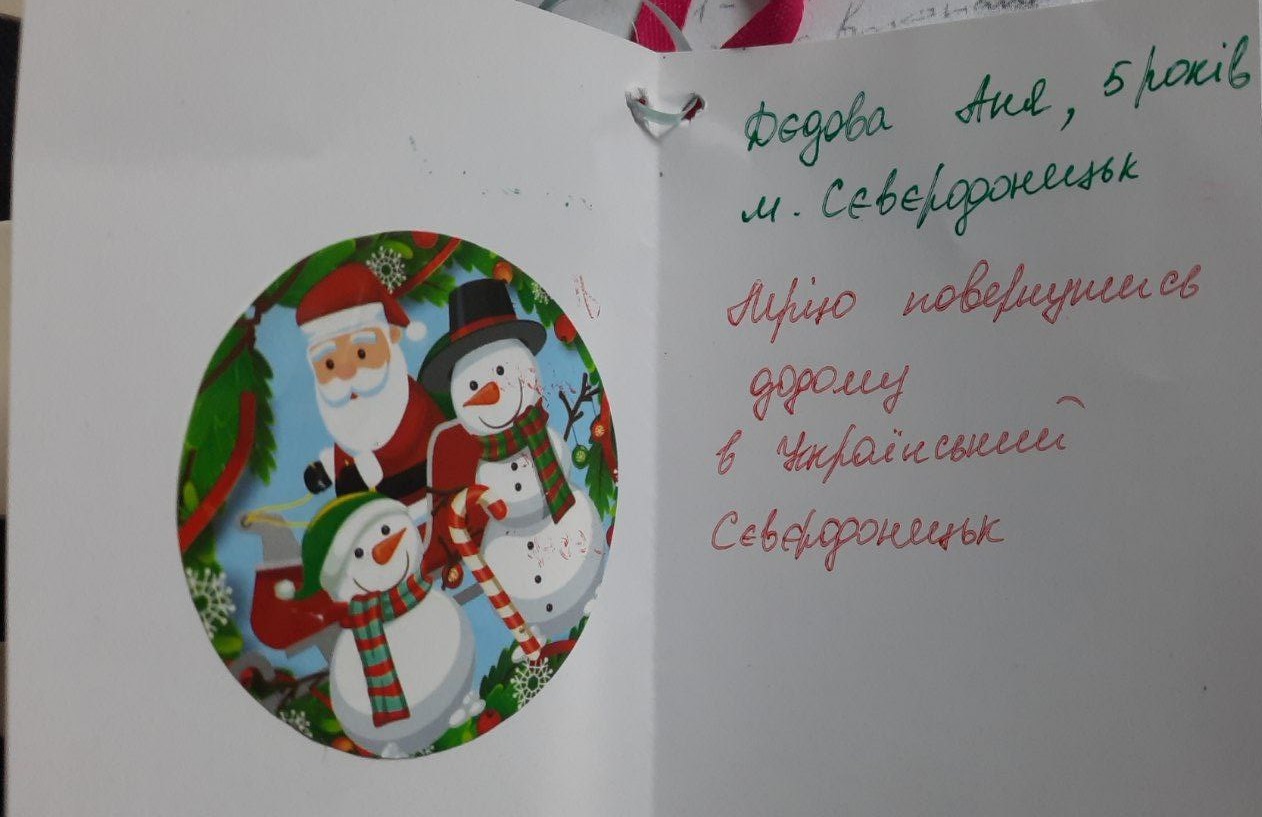 Дєдова Аня, 5 років
м. Сєвєродонецьк
Мрію повернутись
додому
в Український
Сєвєродонецьк